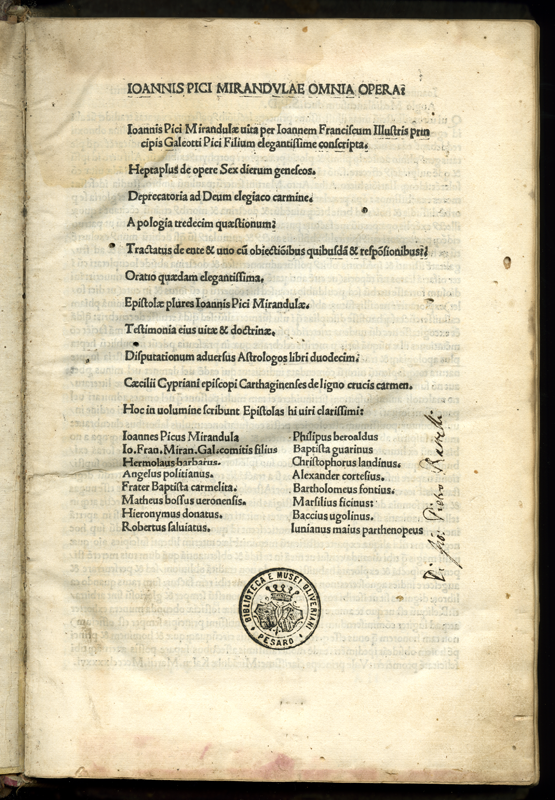 IOANNIS PICI MIRANDVLAE OMNIA OPERA?
Ioannis Pici Mirandulæ uita per Ioannem Franciscum Illustris prin
cipis Galeotti Pici Filium elegantissime conscripta.
Heptaplus de opere Sex dierum geneseos.
Deprecatoria ad Deum elegiaco carmine.
Apologia tredecim quæstionum?
Tractatus de ente & uno cū obiectiōibus quibusdā & respōsionibus?
Oratio quædam elegantissima.
Epistolæ plures Ioannis Pici Mirandulæ.
Testimonia eius uitæ & doctrinæ.
Disputationum aduersus Astrologos libri duodecim.
Cæcilii Cypriani episcopi Carthaginenses de ligno crucis carmen.
Hoc in uolumine scribunt Epistolas hi uiri clarissimi:
Ioannes Picus Mirandula
Io.Fran.Miran.Gal.comitis filius
Hermolaus barbarus.
Angelus politianus.
Frater Baptista carmelita.
Matheus bossus ueronensis.
Hieronymus donatus.
Robertus saluiatus.
Philipus beroaldus
Baptista guarinus
Christophorus landinus.
Alexander cortesius.
Bartholomeus fontius.
Marsilius ficinus:
Baccius ugolinus.
Iunianus maius parthenopeus
Di Pietro
BIBLIOTECA E MUSEI OLIVERIANI
PESARO